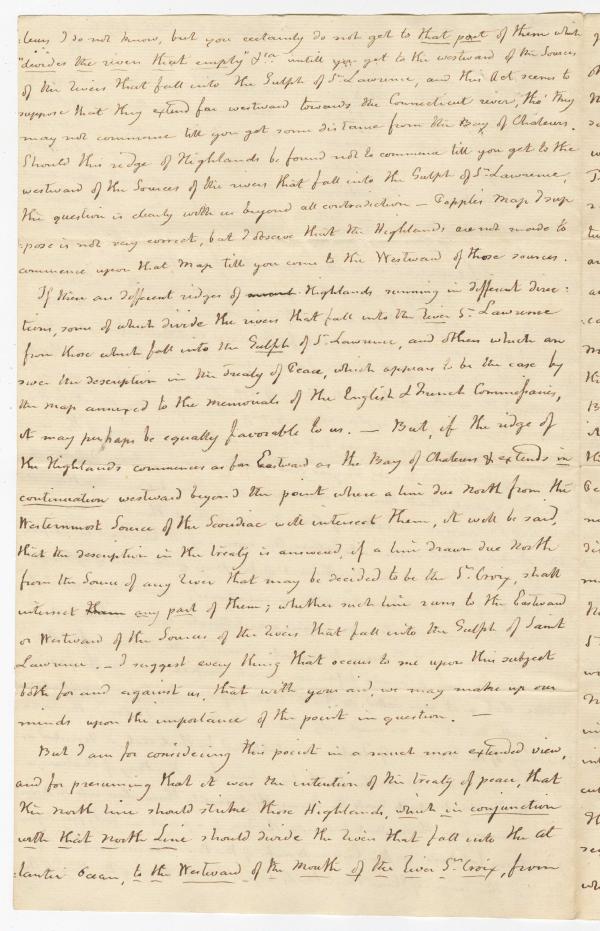 -leurs I do not know, but you certainly do not get to that part of them which
"divides the rivers that empty" &ca. untill you get to the westward of the Sources
of the rivers that fall into the Gulph of St. Lawrence, and this Act seems to
suppose that they extend far westward towards the Connecticut river, tho' they
may not commence till you get some distance from the Bay of Chaleurs.
Should this ridge of Highlands be found not to commence till you get to the
westward of the Sources of the rivers that fall into the Gulph of St. Lawrence,
the question is clearly with us beyond all contradiction — Popple's Map I sup
-pose is not very correct, but I observe that the Highlands are not made to
commence upon that Map till you come to the Westward of those sources.
If there are different ridges of Highlands running in different direc:
tions, some of which divide the rivers that fall into the river St. Lawrence
from those which fall into the Gulph of St. Lawrence, and others which an
swer the description in the treaty of Peace, which appears to be the case by
the map annexed to the memorials of the English & French Commissaries,
it may perhaps be equally favorable to us. — But, if the ridge of
the Highlands commences as far Eastward as the Bay of Chaleurs & extends in
continuation westward beyond the point where a line due North from the
Westernmost Source of the Scoudiac will intersect them, it will be said,
that the description in the treaty is answered, if a line drawn due North
from the Source of any river that may be decided to be the St. Croix, shall
intersect them any part of them; whether such line runs to the Eastward
or Westward of the Sources of the rivers that fall into the Gulph of Saint
Lawrence. — I suggest every thing that occurs to me upon this subject
both for and against us, that with your aid, we may make up our
minds upon the importance of the point in question. —
But I am for considering this point in a much more extended view,
and for presuming that it was the intention of the treaty of peace, that
the north line should strike those Highlands, which in conjunction
with that North Line should divide the rivers that fall into the At
lantic Ocean, to the Westward of the Mouth of the river St. Croix, from